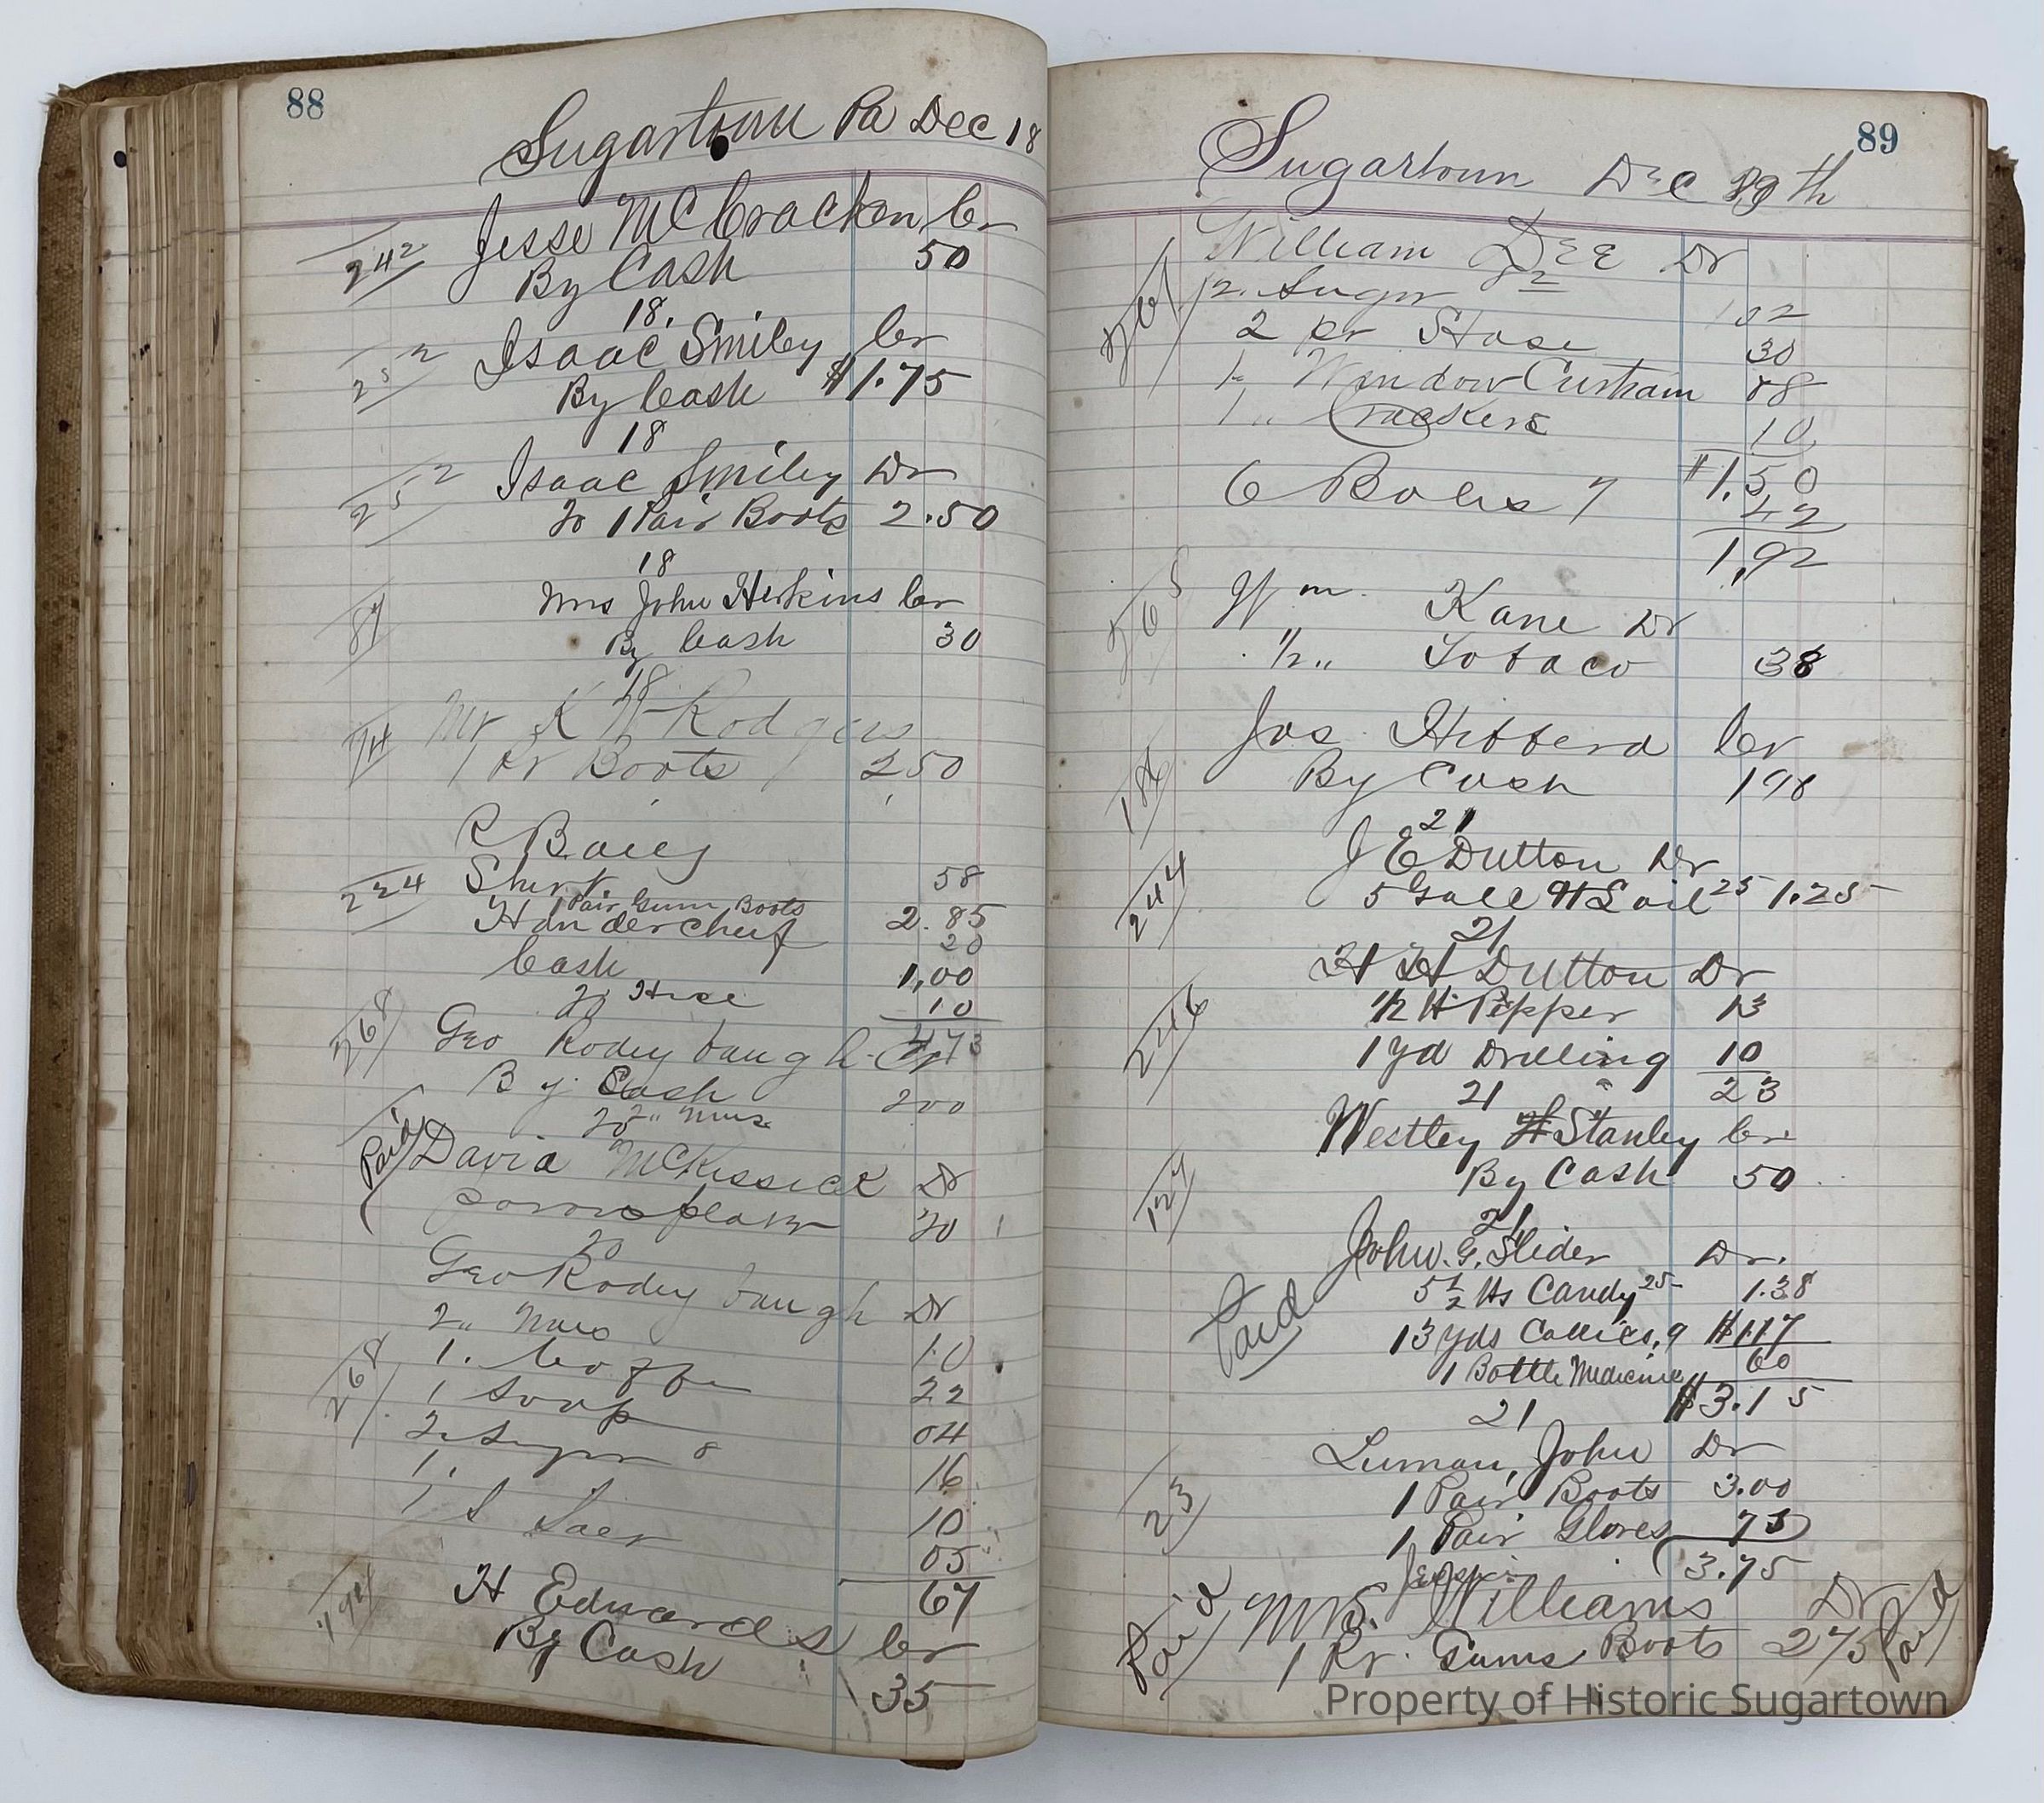 88
Sugartown Pa Dec 18
242 Jesse McCracken Cr
By Cash 50
18.
252 Isaac Smiley Cr
By Cash $1.75
18
252 Isaac Smiley Dr
To 1 Pair Boots 2.50
18
87 Mrs John Herkins Cr
By Cash 30
18
74 Mr K W Rodgers
1 Pr Boots 250
224 Shirt 58
1 Pair Gum Boots
Handercheif 2.85
20
Cash 1,00
Hose 10
473
268 Geo Rodeybaugh Cr
By Cash 200
20
Paid David McKissick Dr
30
20
Geo Rodeybaugh Dr
2 „ 10
1. 22
268 1 Soap 04
2 Sugar 8 16
1. 10
1 05
67
H Edwards Cr
By Cash 35
89
Sugartown Dec 19th
William Dee Dr
12. Sugar 102
2 pr Hose 30
1 Window Curtain 08
1 „ Crackers 10
$1,50
6 7 42
1,92
265 Wm. Kane Dr
1/2 „ Tobaco 38
Jos. Hibberd Cr
By Cash 198
21
244 J E Dutton Dr
5 Gall H L oil 25 1.25
21
H H Dutton Dr
226 1/2 lb Pepper 13
1 yd Drilling 10
21 23
Westley H Stanley Cr
127 By Cash 50
21
John. G. Slider Dr.
5 1/2 lbs Candy 25 1.38
Paid 13 yds Callico, 9 $1.17
1 Bottle Medicine 60
$3.15
21
Luman, John Dr
23 1 Pair Boots 3.00
1 Pair Gloves 75
3.75
Paid Mrs. Williams Dr
1 Pr. Gums Boots 275 Paid
Property of Historic Sugartown